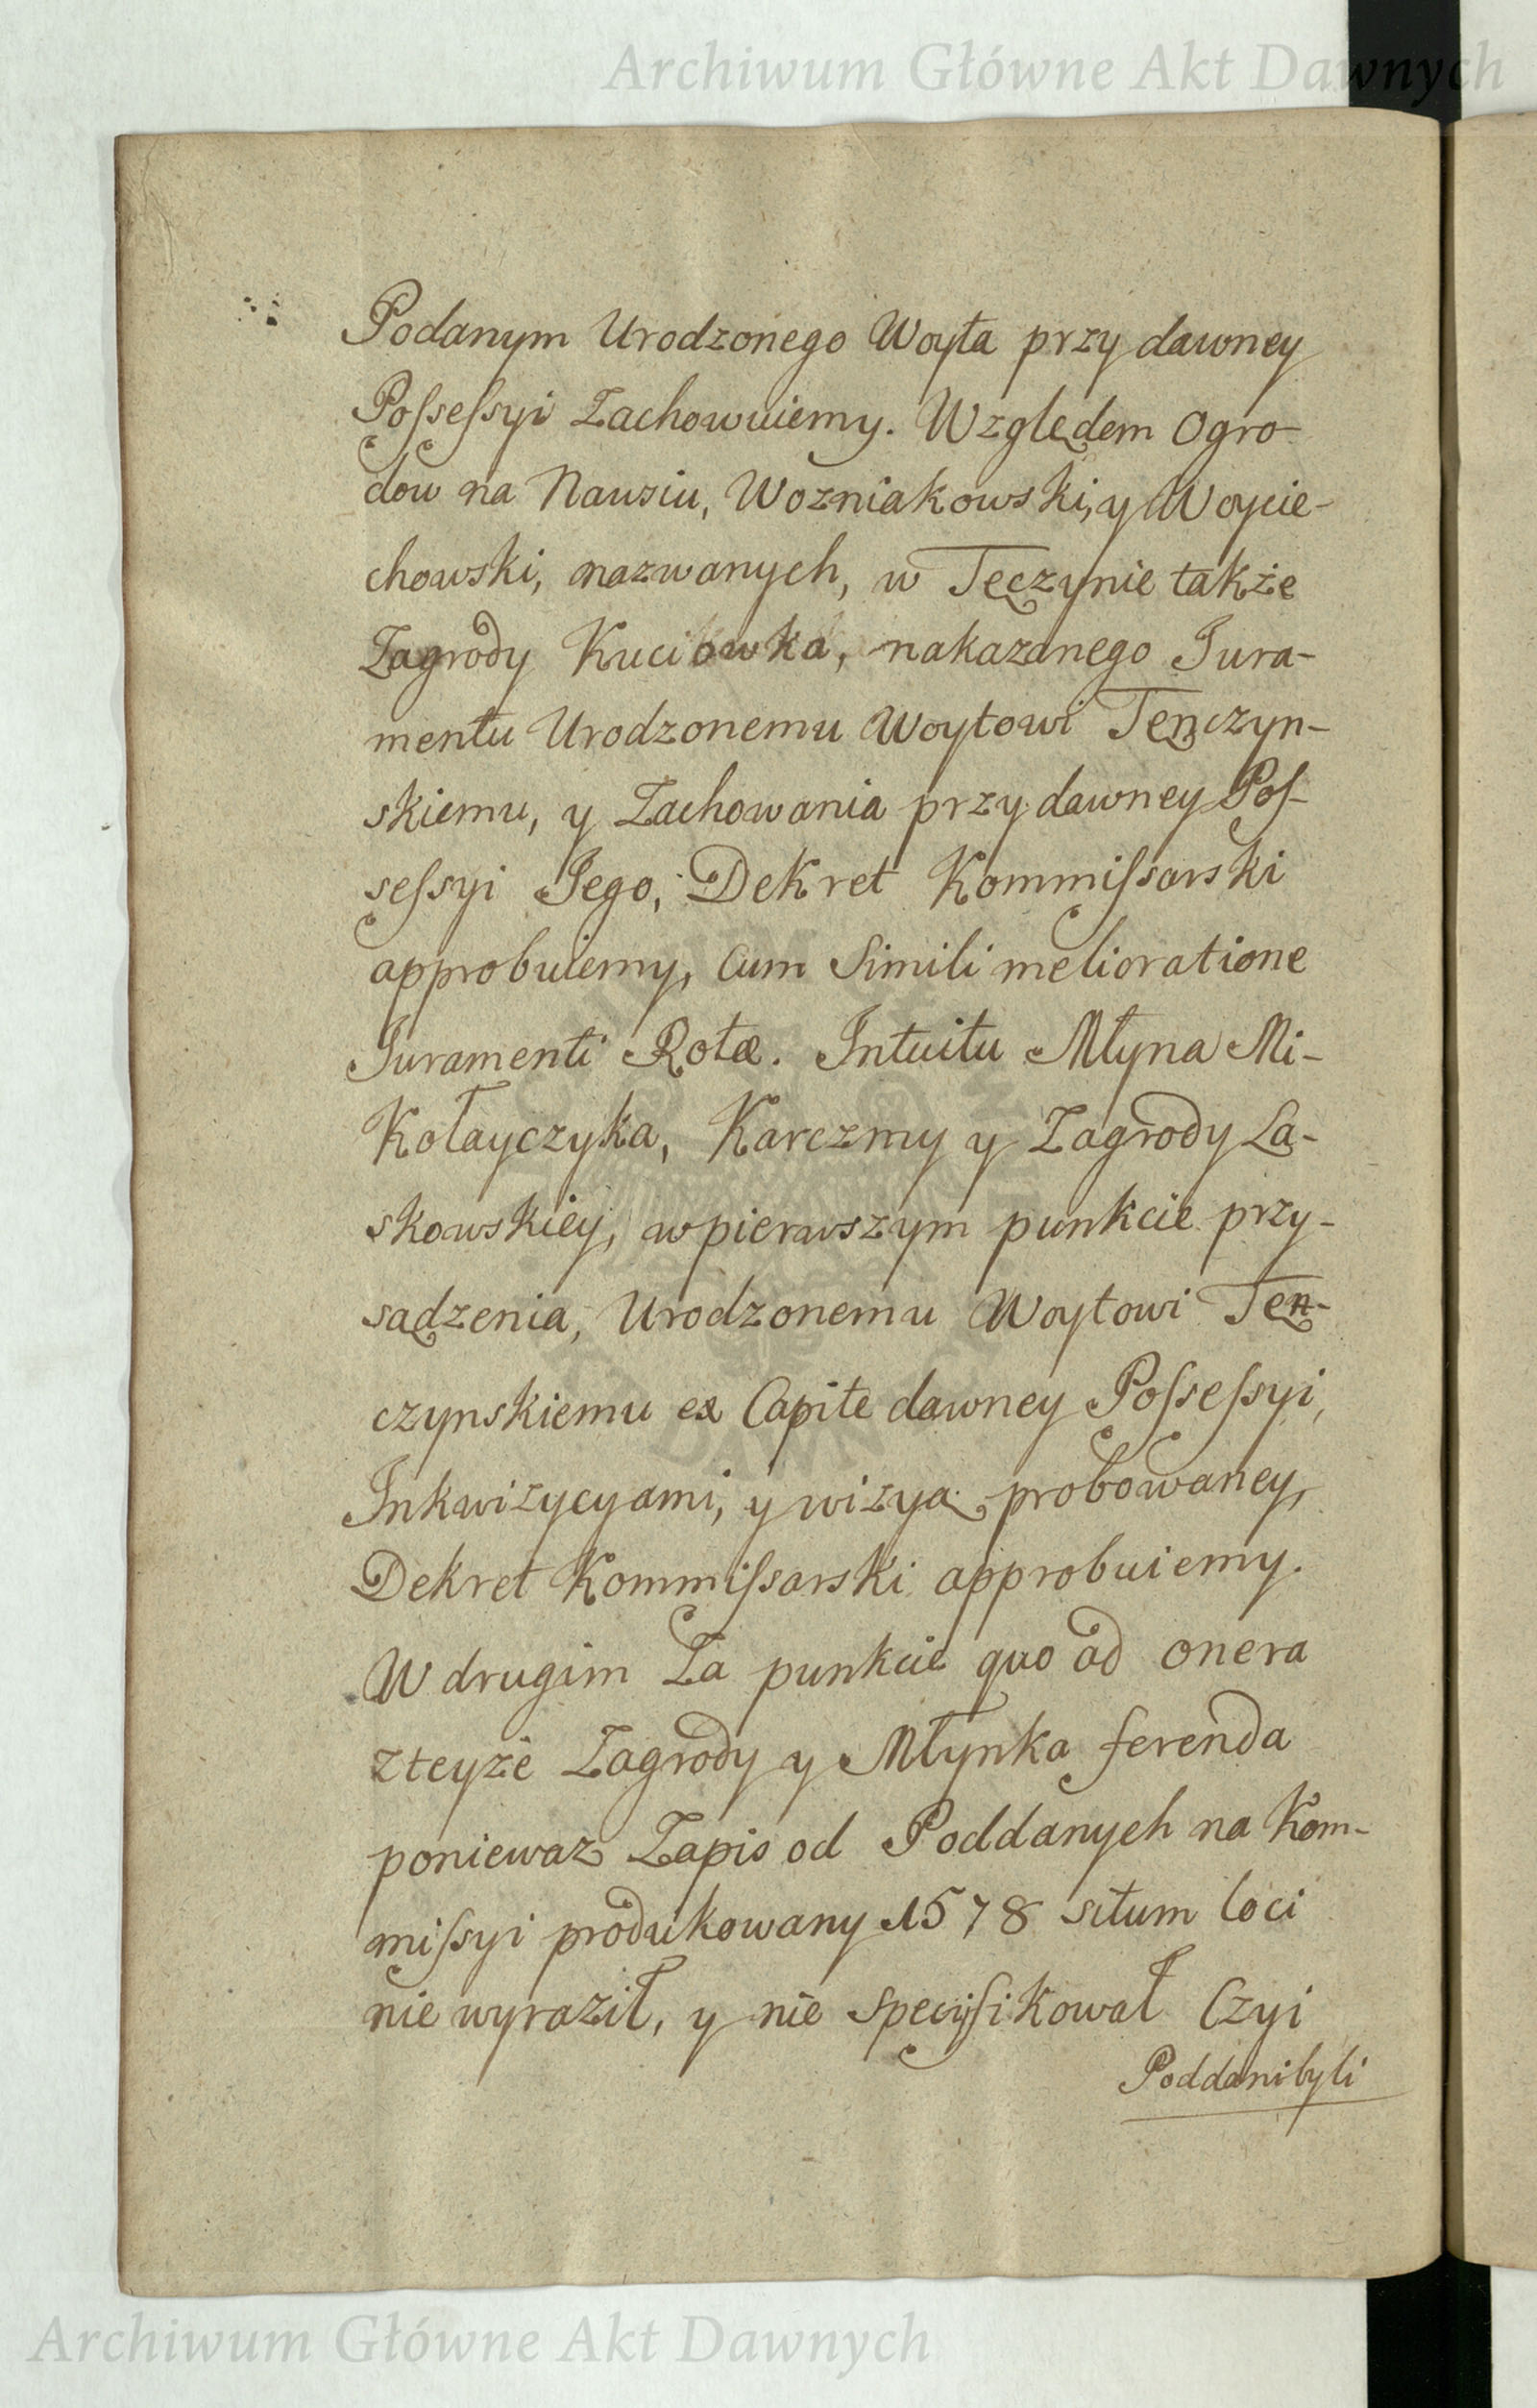 Archiwum Główne Akt Dawnych
Podanym Urodzonego Woyta przy dawney
Poſseſsyi Zachowuiemy. Względem Ogro-
dow na Nawsiu, Wozniakowski, y Woycie-
chowski, nazwanych, w Tęczynie także
Zagrody Kuciowka, nakazanego Jura-
mentu Urodzonemu Woytowi Tenczyn-
skiemu, y Zachowania przy dawney Poſ-
seſsyi Jego, Dekret Kommiſsarski
approbuiemy, Cum Simili melioratione
Juramenti Rotæ. Intuitu Młyna Mi-
kołayczyka, Karczmy y Zagrody La-
skowskiey, w pierwszym punkcie przy-
sądzenia, Urodzonemu Woytowi Ten-
czynskiemu ex Capite dawney Poſseſsyi,
Inkwizycyami, y wizyą probowaney,
Dekret Kommiſsarski approbuiemy.
W drugim Za punkcie quo ad onera
z teyże Zagrody y Młynka ferenda
poniewaz Zapis od Poddanych na Kom-
miſsyi produkowany 1578 situm loci
nie wyraził, y nie specyfikował Czyi
Poddani byli
Archiwum Główne Akt Dawnych